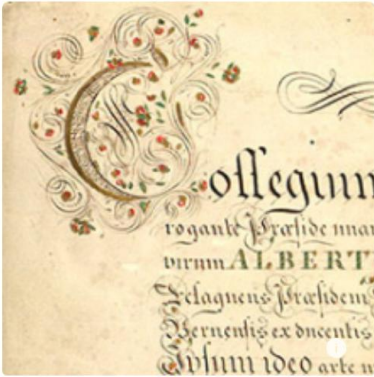 Collegium
rogante Præside unan
virum ALBERT
Pelagneus Præsidem
Bernensis ex ducentis
Ipsum ideo arte n